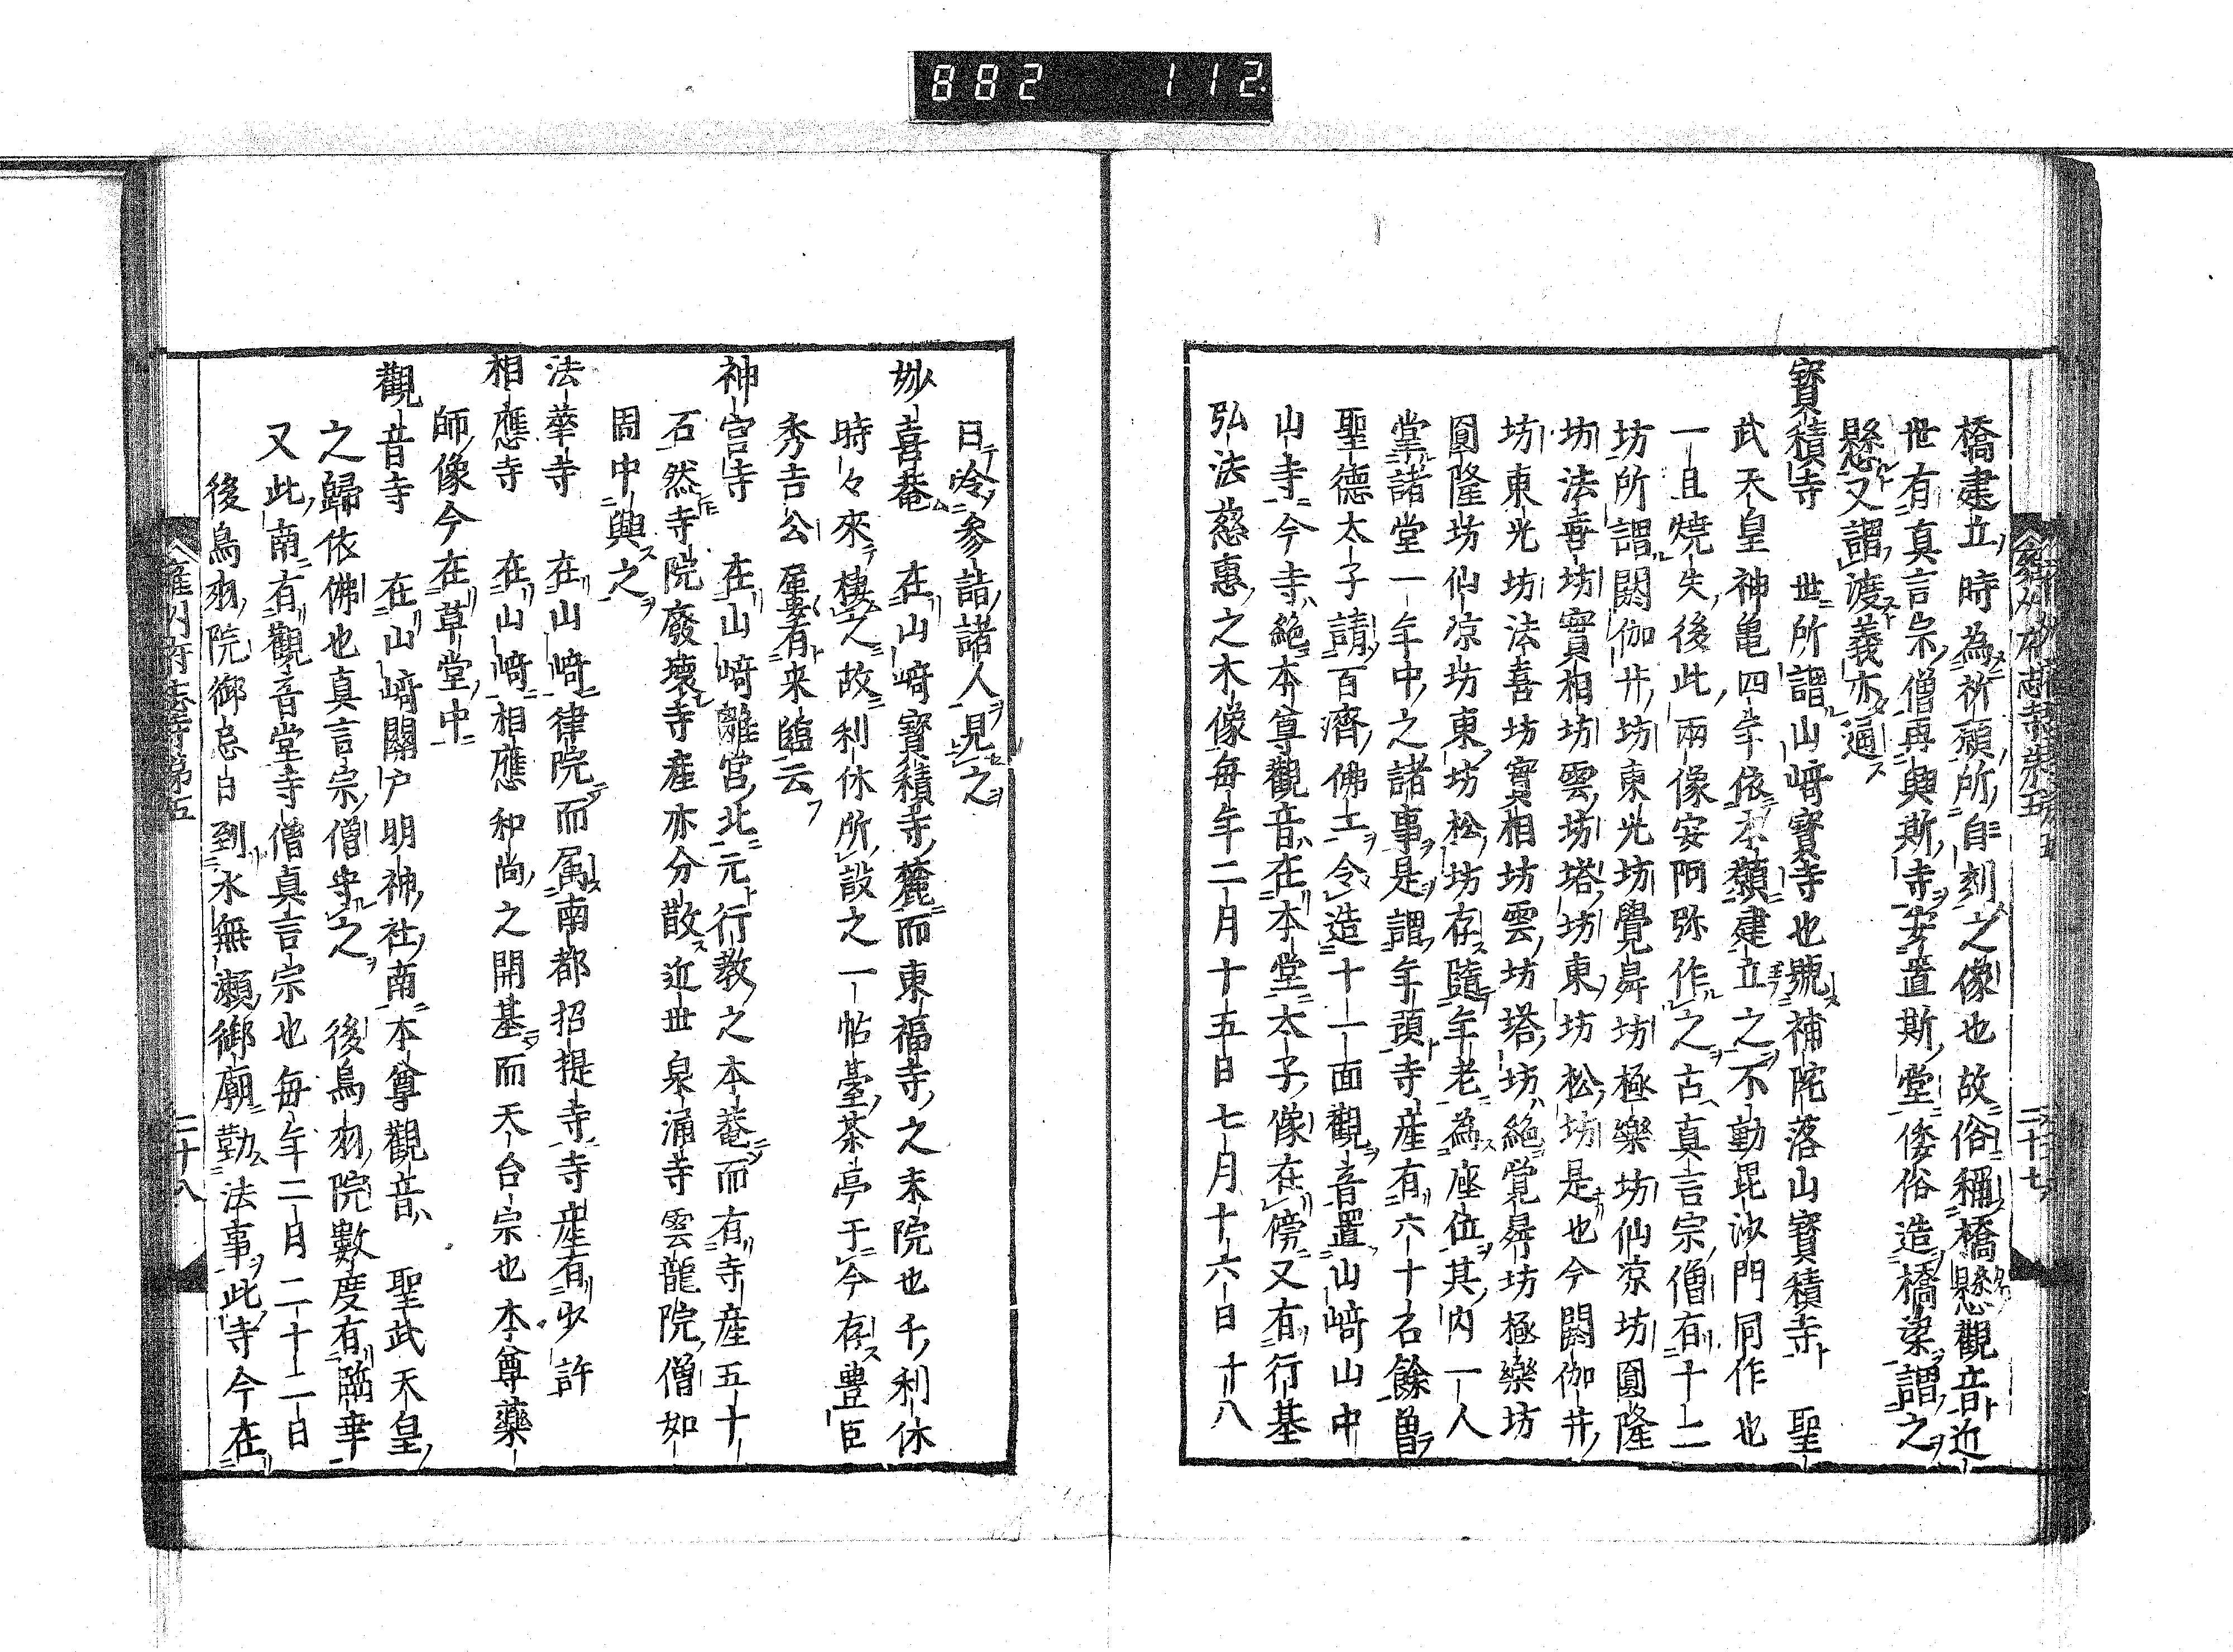 882 112
橋建立時為祈願所自刻之像也故俗稱橋懸觀音近
世有真言宗僧再興斯寺安置斯堂倭俗造橋梁謂之
懸又謂渡義亦通
寶積寺 世所謂山﨑寶寺也號補陀落山寶積寺 聖
武天皇神亀四年依本願建立之不動毘沙門同作也
一旦燒失後此兩像安阿弥作之古真言宗僧有十二
坊所謂閼伽井坊東光坊覺舜坊極樂坊仙凉坊圓隆
坊法善坊實相坊雲坊塔坊東坊松坊是也今閼伽井
坊東光坊法喜坊實相坊雲坊塔坊絶覚舜坊極樂坊
圓隆坊仙凉坊東坊松坊存隨年老為座位其内一人
掌諸堂一年中之諸事是謂年預寺産有六十石餘曽
聖德太子請百濟佛工令造十一面觀音置山﨑山中
山寺今寺絶本尊觀音在本堂太子像在傍又有行基
弘法慈惠之木像每年二月十五日七月十六日十八
雍州府志第五 二十七
日吟參詣諸人見之
妙喜菴 在山﨑寶積寺麓而東福寺之末院也千利休
時々來棲之故利休所設之一帖臺茶亭于今存豊臣
秀吉公屢有来臨云
神宮寺 在山﨑離宮北元行教之本菴而有寺産五十
石然寺院廢壊寺産亦分散近世泉涌寺雲龍院僧如
周中興之
法華寺 在山﨑律院而属南都招提寺寺産有少許
相應寺 在山﨑相應和尚之開基而天台宗也本尊藥
師像今在草堂中
觀音寺 在山﨑關户明神社南本尊觀音 聖武天皇
之歸依佛也真言宗僧守之 後鳥羽院數度有臨幸
又此南有觀音堂寺僧真言宗也每年二月二十二日
後鳥羽院御忌日到水無瀬御廟勤法事此寺今在
雍州府志第五 二十八